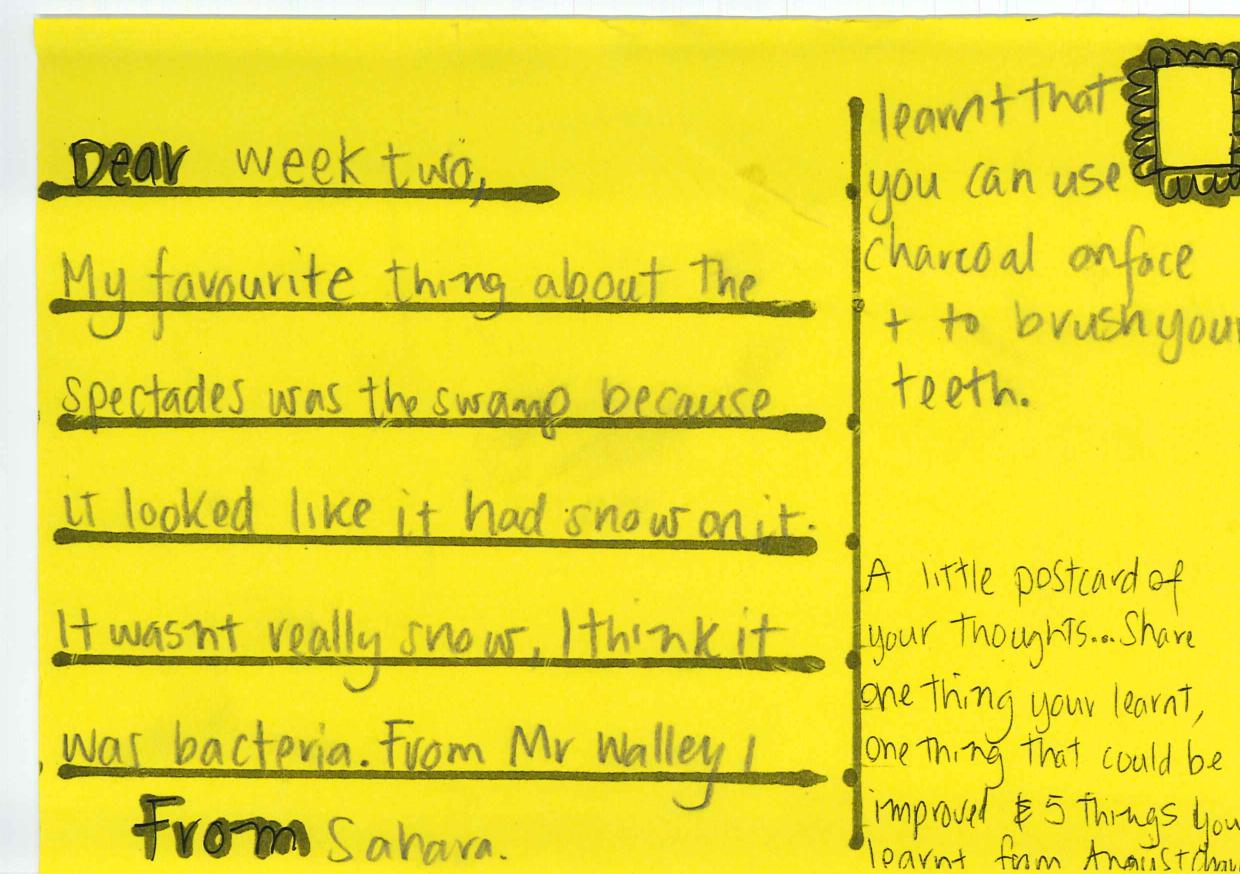 Dear week two,
My favourite thing about the
spectacles was the swamp because
it looked like it had snow on it.
It wasnt really snow, I think it
was bacteria. From Mr Walley I
From Sahara.
learnt that
you can use
charcoal on face
+ to brush your
teeth.
A little postcard of
your thoughts... Share
one thing your learnt,
one thing that could be
improved & 5 things you
learnt from